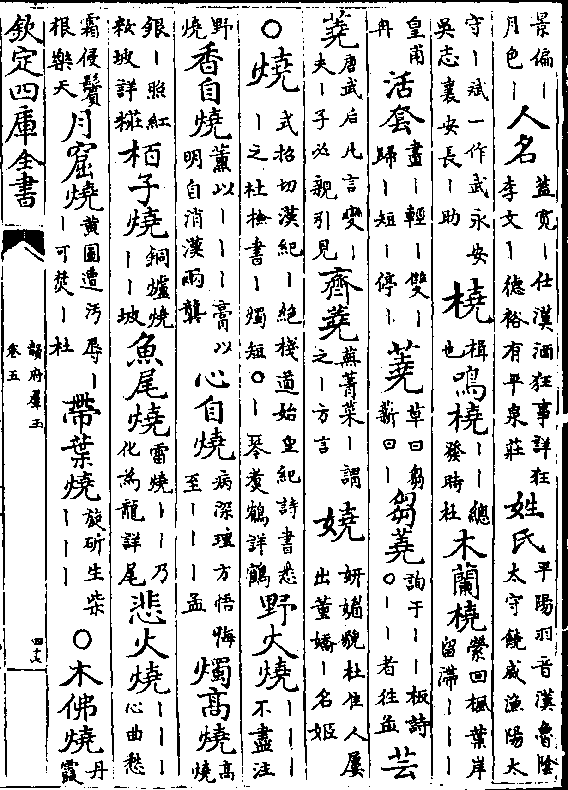 景偏丨月色丨人名蓋寛丨仕漢酒狂事詳狂李文丨德裕有平泉莊姓氏平陽羽音漢魯陰太守饒威漁陽太
守丨斌一作武永安吳志襄安長丨助橈楫也鳴橈丨丨總發時杜木蘭橈縈回楓葉岸留滯丨丨丨
皇甫冉活套畫丨輕丨雙丨歸丨短丨停丨蕘草曰芻薪曰丨芻蕘詢于丨丨板詩〇丨丨者往孟芸
蕘唐武后凡言變丨夫丨子必親引見齊蕘蘇菁菜丨謂之丨方言嬈妍媚貌杜佳人屢出董嬌丨名姬
〇燒式招切漢紀丨絶棧道始皇紀詩書悉丨之杜檢書丨燭短〇丨琴煑鶴詳鶴野火燒丨丨丨不盡注
野燒香自燒薰以丨丨丨膏以明自消漢兩龔心自燒病深理方悟悔至丨丨丨孟燭高燒高燒
銀丨照紅粧坡詳歎栢子燒銅爐燒丨丨坡魚尾燒雷燒丨丨乃化為龍詳尾悲火燒丨丨丨心曲愁
霜侵鬢根樂天月窟燒黄圖遭汚辱丨丨可焚丨杜帶葉燒旋斫生柴丨丨丨〇木佛燒丹霞
欽定四庫全書
韻府羣玉
卷五
四十七